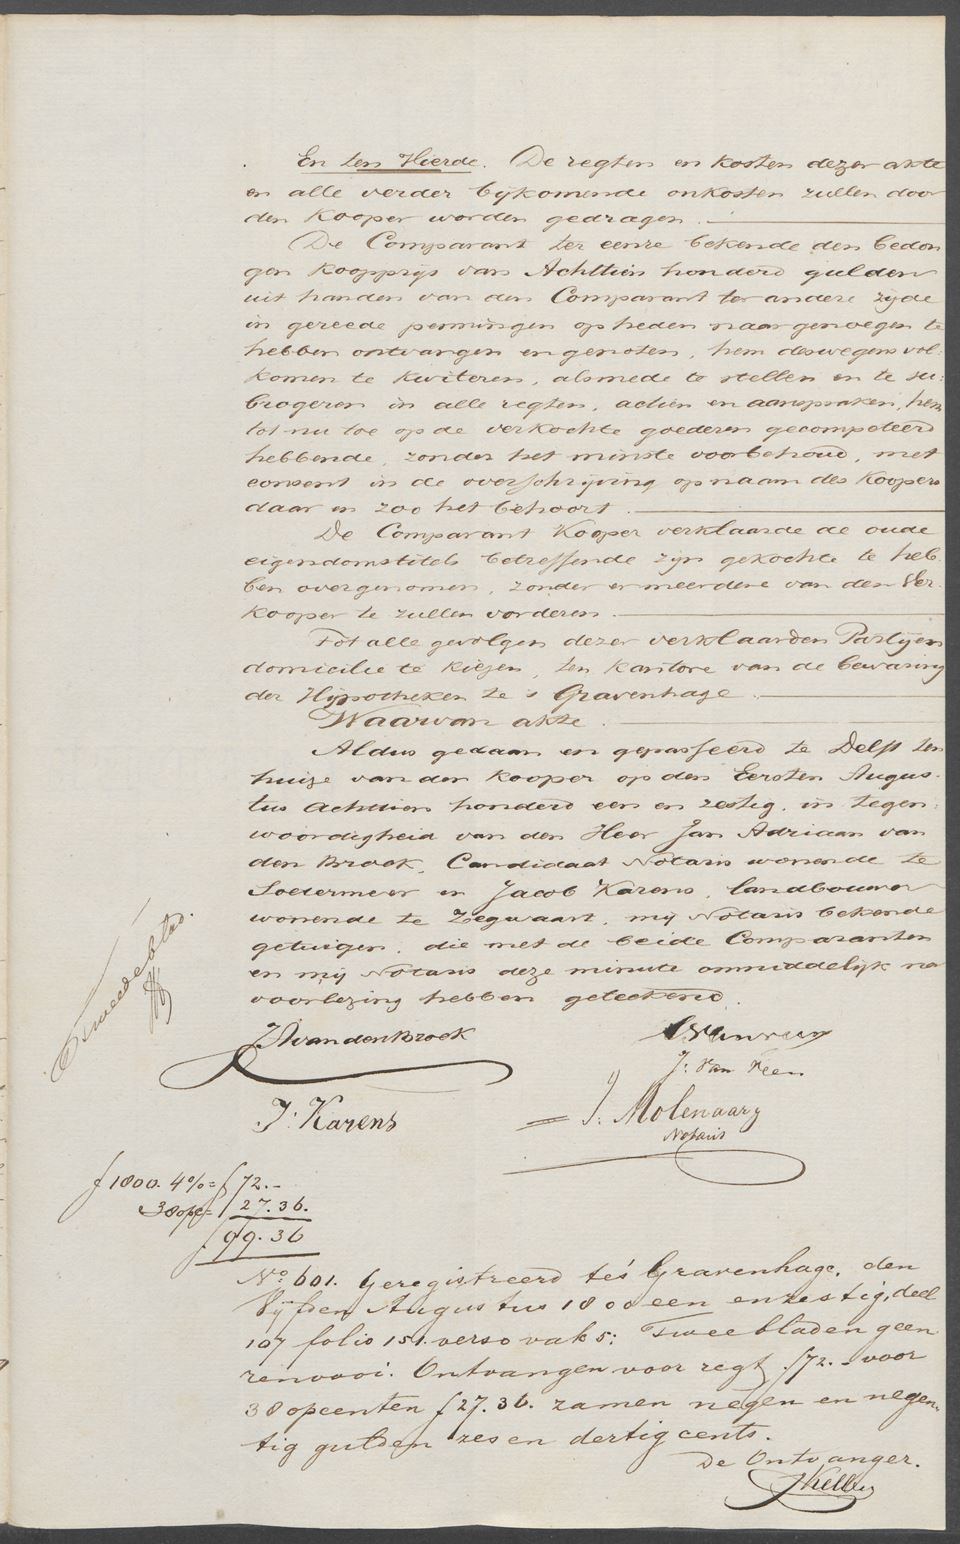 En ten Vierde. De regten en kosten dezer akte
en alle verder bijkomende onkosten zullen door
den Kooper worden gedragen.
De Comparant ter eenre bekende den bedon
gen Koopprijs van Achttien honderd gulden
uit handen van den Comparant ter andere zijde
in gereede penningen op heden naar genoegen te
hebben ontvangen en genoten, hem deswegens vol-
komen te Kwiteren, alsmede te stellen en te su-
brogeren in alle regten, actien en aanspraken, hem
tot nu toe op de verkochte goederen gecompeteerd
hebbende, zonder het minste voorbehoud, met
consent in de overschrijving op naam des Koopers
daar en zoo het behoort.
De Comparant Kooper verklaarde de oude
eigendomstitels betreffende zijn gekochte te heb-
ben overgenomen, zonder er meerdere van den Ver-
kooper te zullen vorderen.
Tot alle gevolgen dezer verklaarden Partijen
domicilie te kiezen, ten kantore van de bewaring
der Hypotheken te 's Gravenhage.
Waarvan akte.
Aldus gedaan en gepasseerd te Delft ten
huize van den Kooper op den Eersten Augus-
tus achttien honderd een en zestig, in tegen-
woordigheid van den Heer Jan Adriaan van
den Broek, Candidaat Notaris wonende te
Soetermeer en Jacob Karens, landbouwer
wonende te Zegwaart, mij Notaris bekende
getuigen, die met de beide Comparanten
en mij Notaris deze minute onmiddelijk na
voorlezing hebben geteekend.
Tweede blad.
JA van den Broek
J. Van Veen
J. Karens
J. Molenaar
Notaris
f 1800. 4% = f 72.-
38 opc = 27.36.
f 99.36
No. 601. Geregistreerd te 's Gravenhage, den
Vijfden Augustus 1800 een en zestig, deel
107 folio 151 verso vak 5; Twee bladen geen
renvooi. Ontvangen voor regt f 72.- voor
38 opcenten f 27.36. zamen negen en negen-
tig gulden zes en dertig cents.
De Ontvanger.